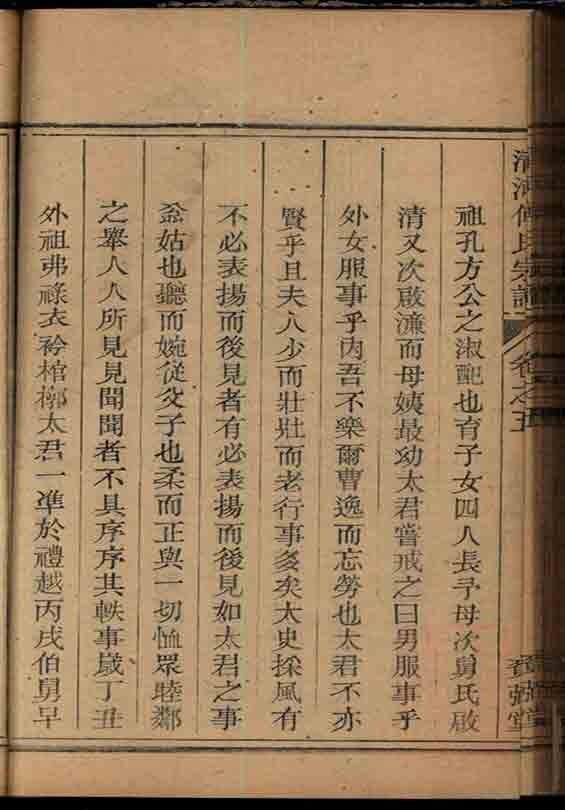 清河傅氏宗譜 卷之五 賚弼堂
祖孔方公之淑配也育子女四人長予母次舅氏啟
清又次啟濂而母姨最幼太君嘗戒之曰男服事乎
外女服事乎内吾不樂爾曹逸而忘勞也太君不亦
賢乎且夫人少而壯壯而老行事多矣太史採風有
不必表揚而後見者有必表揚而後見如太君之事
翁姑也聽而婉從父子也柔而正與一切恤眾睦鄰
之舉人人所見見聞聞者不具序序其軼事歲丁丑
外祖弗祿衣衾棺槨太君一準於禮越丙戌伯舅早